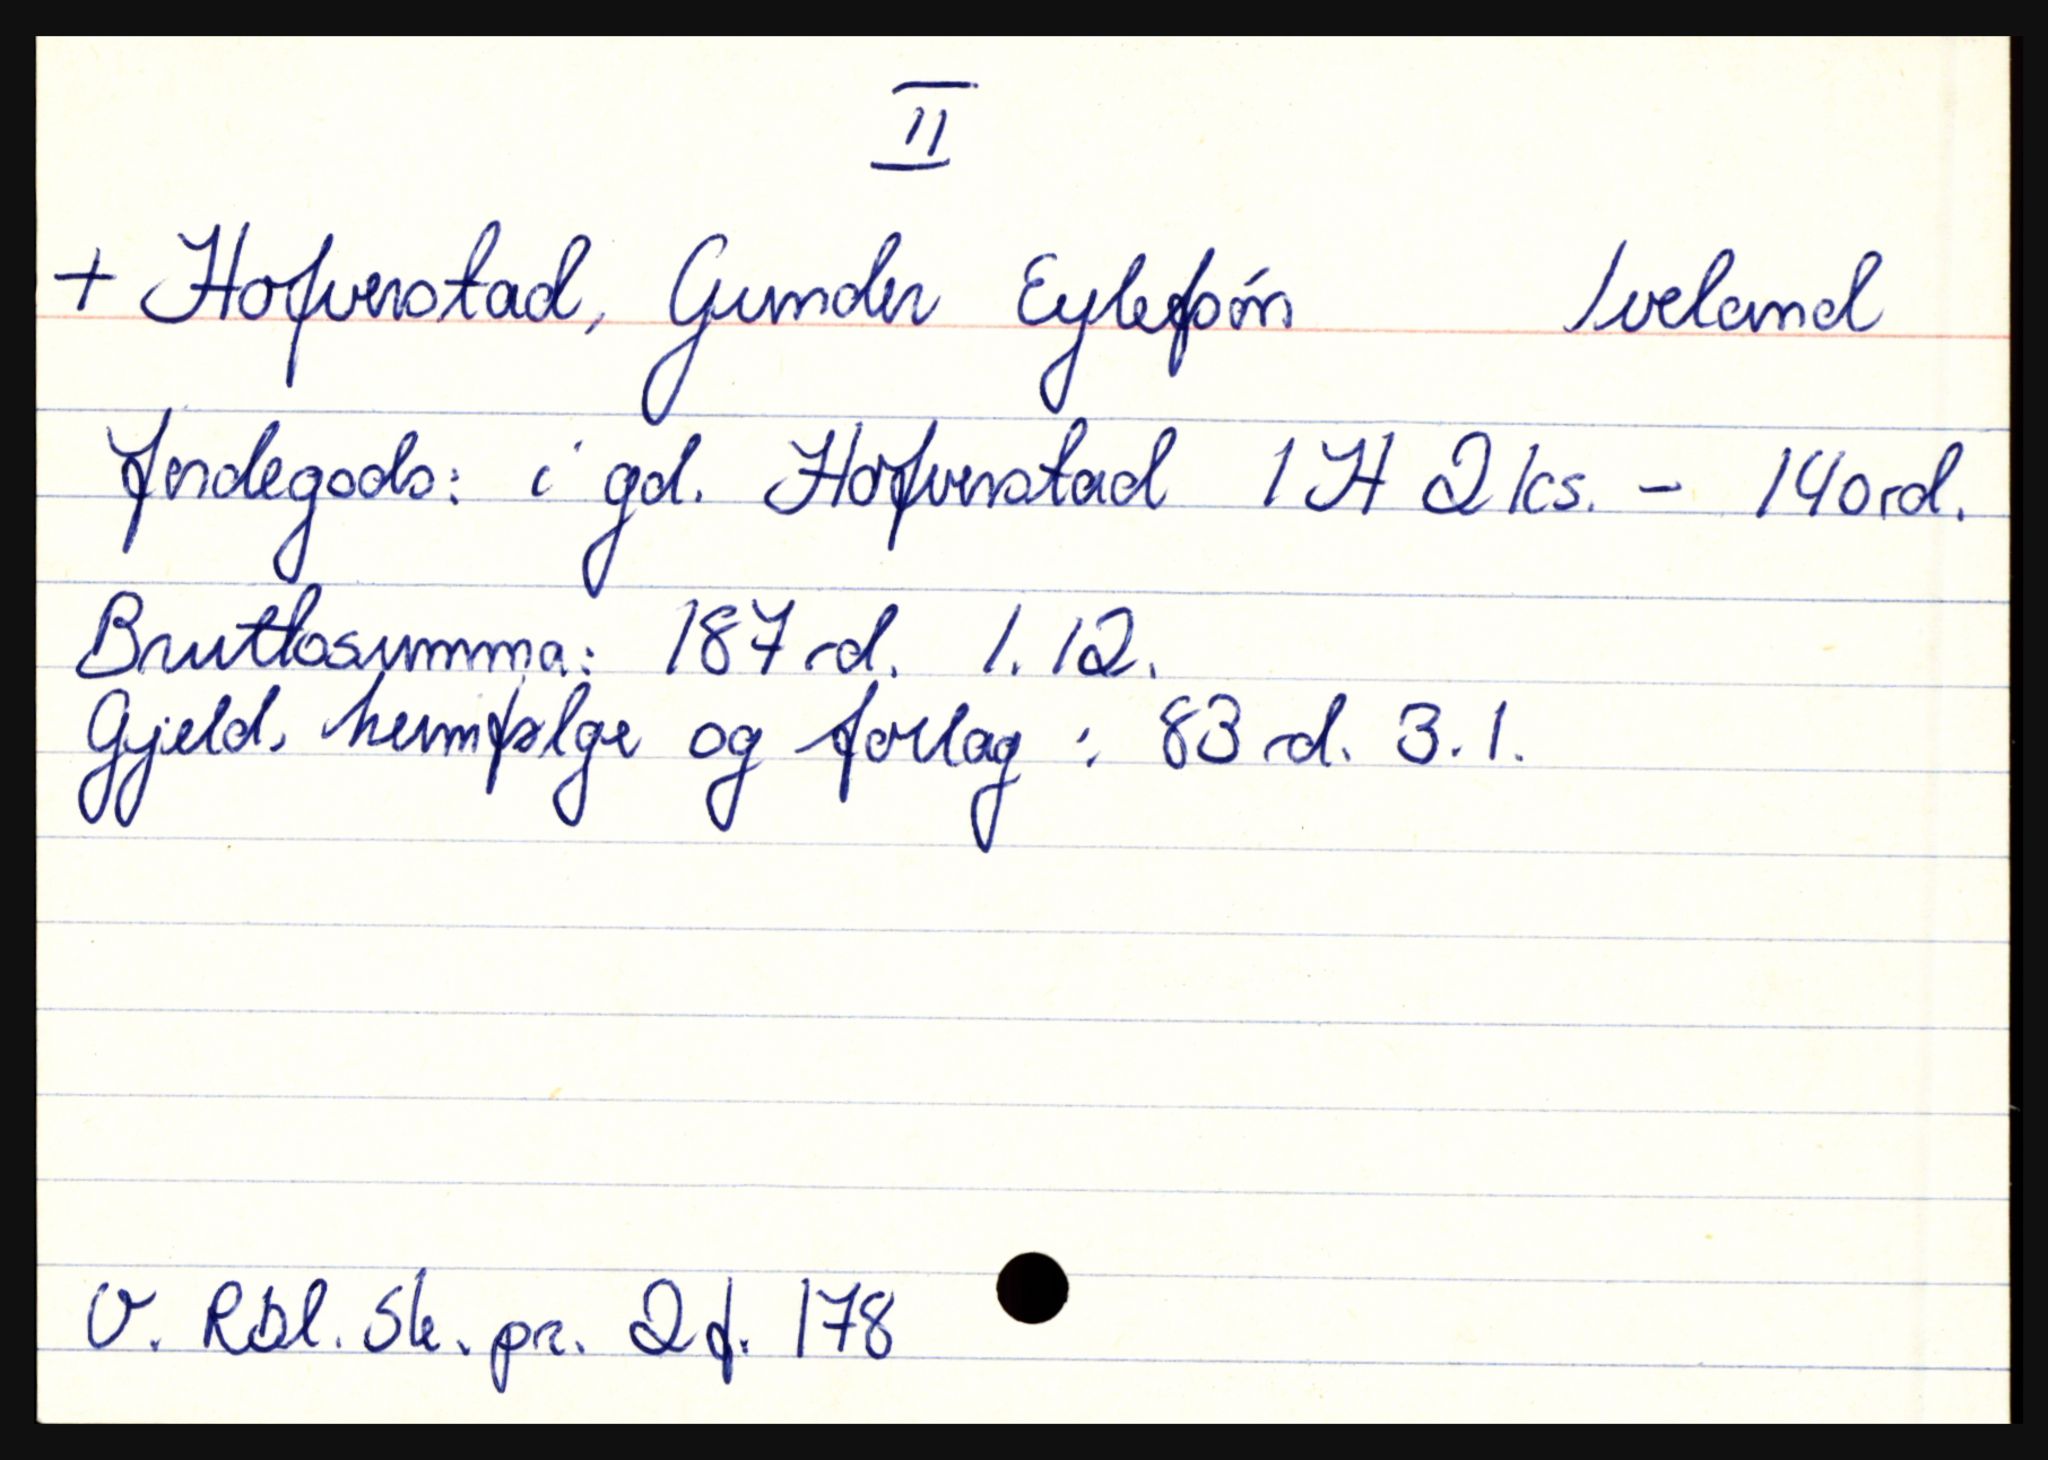 II
+ Hofverstad, Gunder Eylefsøn Iveland
Jordegods: i gd. Hofverstad 1 H 2 ks. - 140 rd.
Bruttosumma: 187 rd. 1. 12.
Gjeld, heimfølge og forlag: 83 rd. 3. 1.
V. Rbl. Sk. pr. 2 f. 178